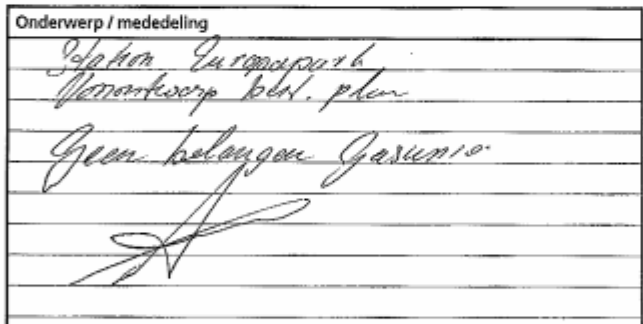 Onderwerp / mededeling
Station Europapark
Voorontwerp best. plan
Geen belangen Gasunie